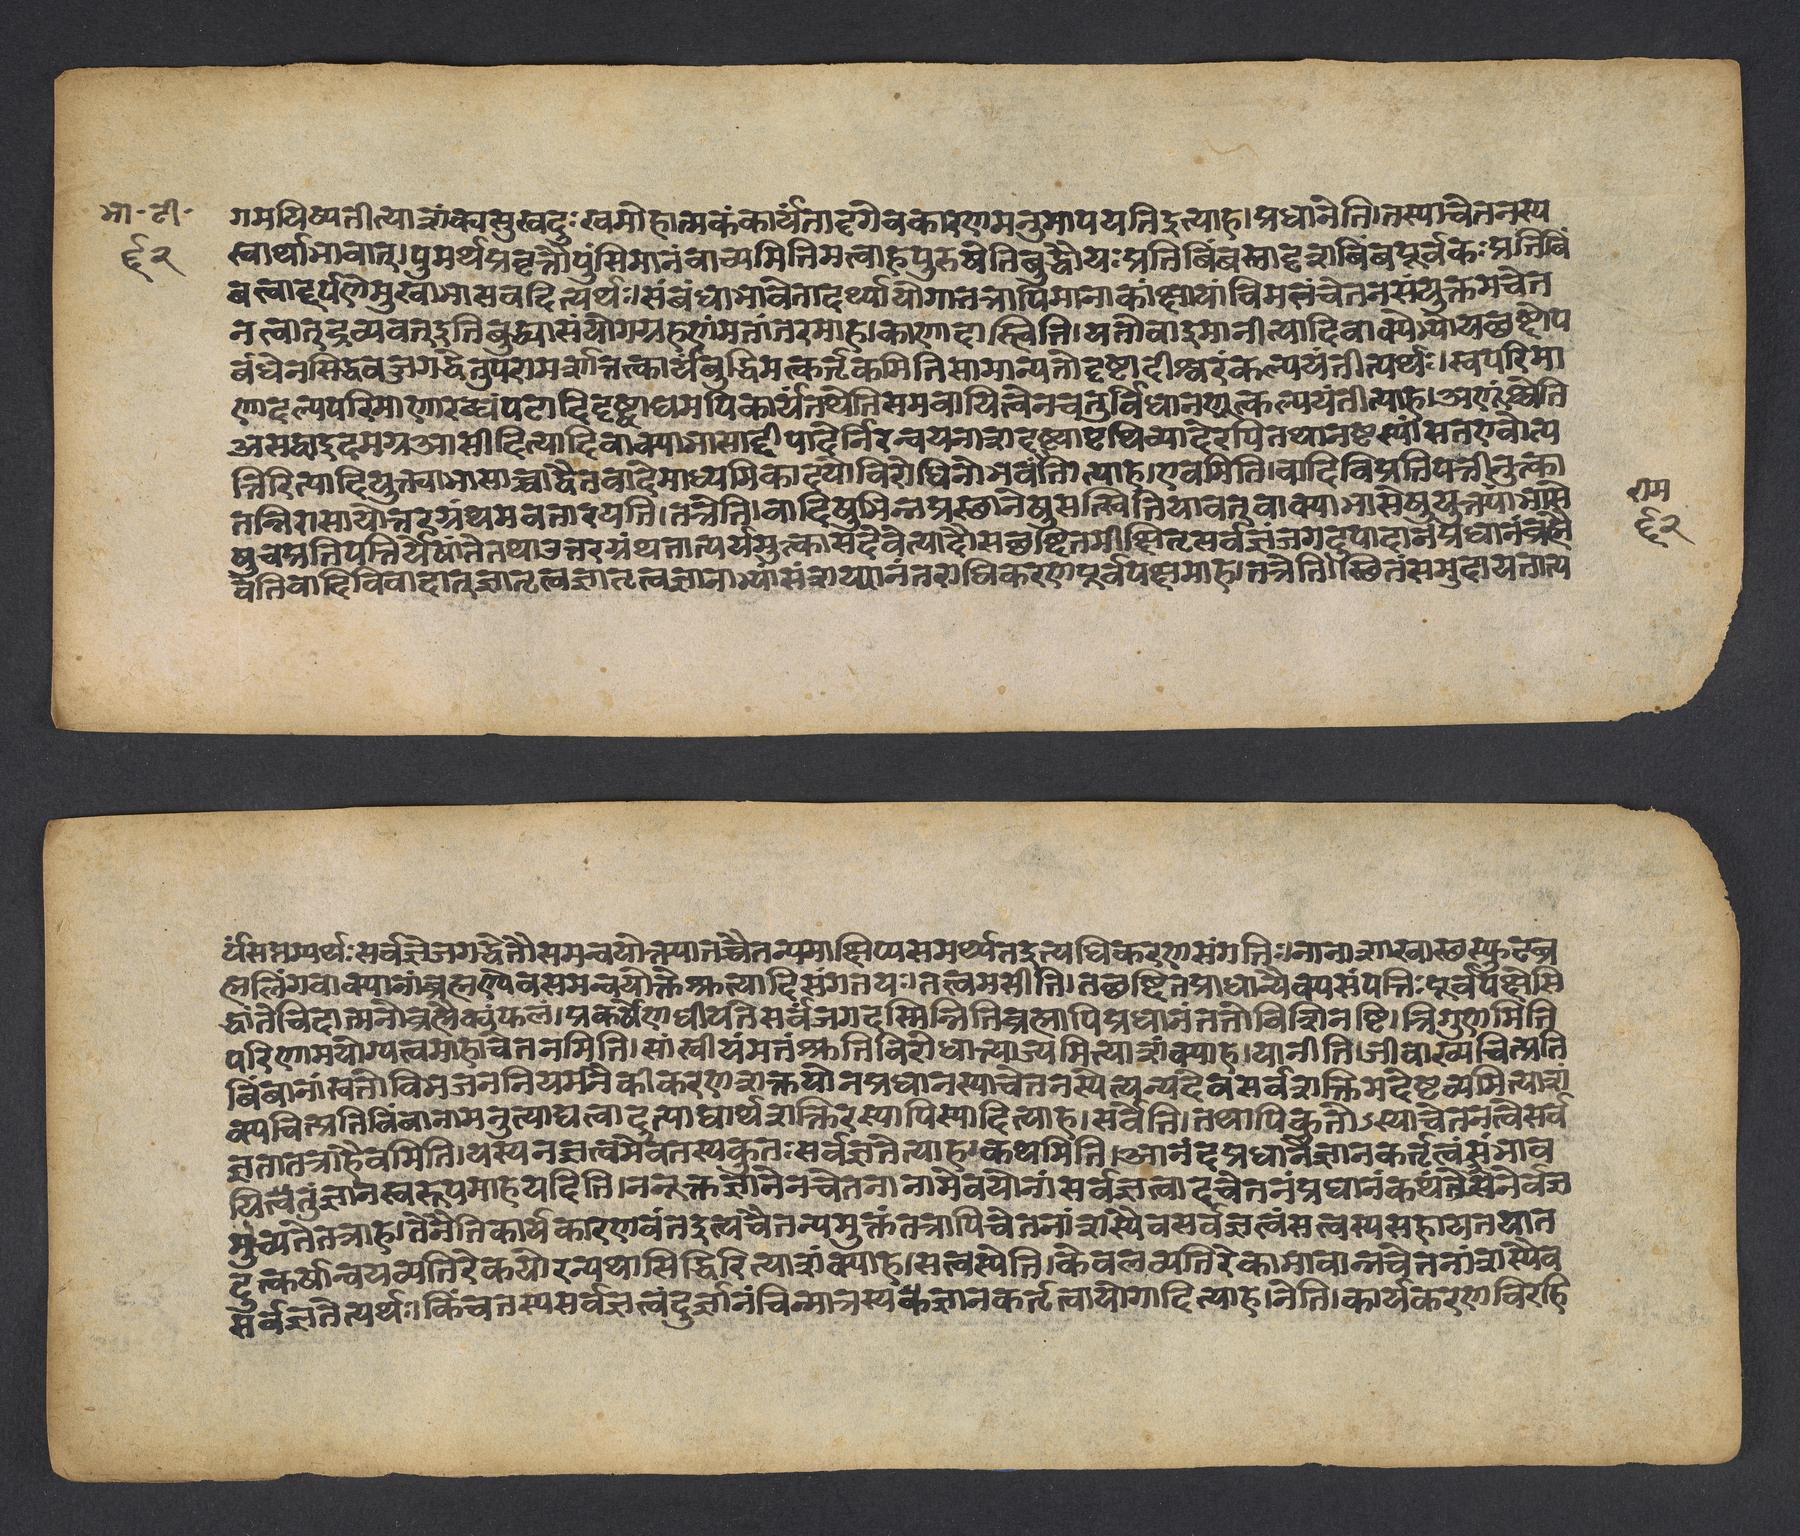 भा. टी.
६२
गमयिष्यतीत्याशंक्यसुखदुःखमोहात्मकंकार्यंतादृगेवकारणमनुमापयतिइत्याह।प्रधानेति।तस्याचेतनस्य
स्वार्थाभावात्।पुमर्थप्रवृत्तौपुंसिमानंवाच्यमितिमत्वाहपुरुषेतिबुद्धौयःप्रतिबिंबस्तादृशबिंबपूर्वकःप्रतिबिं
बत्वाद्दर्पणेमुखाभासवदित्यर्थः।संबंधाभावेतादर्थ्यायोगात्तत्रापिमानाकांक्षायांविमतंचेतनसंयुक्तमचेत
नत्वात्द्रव्यवत्इतिबुद्ध्यासंयोगग्रहणंमतांतरमाह।काणादास्त्विति।यतोवाइमानीत्यादिवाक्ये
र्बंधेनसिद्धवज्जगद्धेतुपरामर्शात्तत्कार्यंबुद्धिमत्कर्तृकमितिसामान्यतोदृष्टादीश्वरंकल्पयंतीत्यर्थः।स्वपरिमा
णादल्पपरिमाणारब्धंपटादिदृष्ट्वाद्यमपिकार्यंतथेतिसमवायित्वेनचतुर्विधानणून्कल्पयंतीत्याह।अणूंश्चेति
असद्वाइदमग्रआसीदित्यादिवाक्याभासाद्दीपादेर्निरन्वयनाशदृष्ट्यापृथिव्यादेरपितथानष्टस्यासतएवोत्प
त्तिरित्यादियुक्त्याभासाच्चाद्वैतवादेमाध्यमिकादयोविरोधिनोभवंतीत्याह।एवमिति।वादिविप्रतिपत्तीनुक्त्वा
तन्निरासायोत्तरग्रंथमवतारयति।तत्रेति।वादिषुभिन्नप्रस्थानेषुसत्स्वितियावत्वाक्याभासेषुयुक्त्याभासे
षुचप्रतिपत्तिर्येषांतेतथाउत्तरग्रंथतात्पर्यमुक्त्वासदेवेत्यादौसच्छब्दितमीक्षितृसर्वज्ञंजगदुपादानंप्रधानंब्रह्मे
वेतिवादिविवादात्ज्ञातृत्वज्ञातृत्वज्ञानाभ्यांसंशय्यानंतराधिकरणपूर्वपक्षमाह।तत्रेति।स्थितंसमुदायतात्प
राम
६२
र्यंसप्तम्यर्थःसर्वज्ञेजगद्धेतौसमन्वयोक्त्यातच्चैतन्यमाक्षिप्यसमर्थ्यतइत्यधिकरणसंगतिः।नानाशाखास्थस्फुटब्र
ह्मलिंगवाक्यानांब्रह्मण्येवसमन्वयोक्तेःश्रुत्यादिसंगतयः।तत्वमसीति।तच्छब्दितप्राधान्यैक्यसंपत्तिःपूर्वपक्षेसि
द्धांतेचिदात्मनोब्रह्मैक्यंफलं।प्रकर्षेणधीयतेसर्वंजगदस्मिन्नितिब्रह्मापिप्रधानंततोविशिनष्टि।त्रिगुणमिति
परिणामयोग्यत्वमाहाचेतनमिति।सांखीयंमतंश्रुतिविरोधात्त्याज्यंमित्याशंक्याह।यानीति।जीवाख्यचित्प्रति
बिंबानांस्वतोविभजननियमनैकीकरणशक्तयोनप्रधानस्याचेतनस्येत्यन्यदेवसर्वशक्तिमदेष्टव्यमित्याशं
क्यचित्प्रतिबिंबानामनुत्पाद्यत्वादुत्पाद्यार्थशक्तिरस्यापिस्यादित्याह।सर्वेति।तथापिकुतोऽस्याचेतनत्वेसर्व
ज्ञतातत्राहैवमिति।यस्यनज्ञत्वमेवतस्यकुतःसर्वज्ञतेत्याह।कथमिति।आनंदप्रधानेज्ञानकर्तृत्वंसंभाव
यितुंज्ञानस्वरूपमाहयदिति।नन्रूक्तज्ञानेनचेतनानामेवयोनांसर्वज्ञत्वादचेतनंप्रधानंकथं
मुच्यतेतत्राह।तेनेतिकार्यकारणवंतइत्यंचैतन्यमुक्तंतत्रापिचेतनांशस्यैवसर्वज्ञत्वंसत्वस्यसहायतयात
दुत्कर्षान्वयव्यतिरेकयोरन्यथासिद्धिरित्याशंक्याह।सत्वस्येति।केवलव्यतिरेकाभावान्नचेतनांशस्यैव
सर्वज्ञतेत्यर्थः।किंचतस्यसर्वज्ञत्वंदुर्ज्ञानंचिन्मात्रस्यज्ञानकर्तृत्वायोगादित्याह।नेति।कार्यकरणविरहि